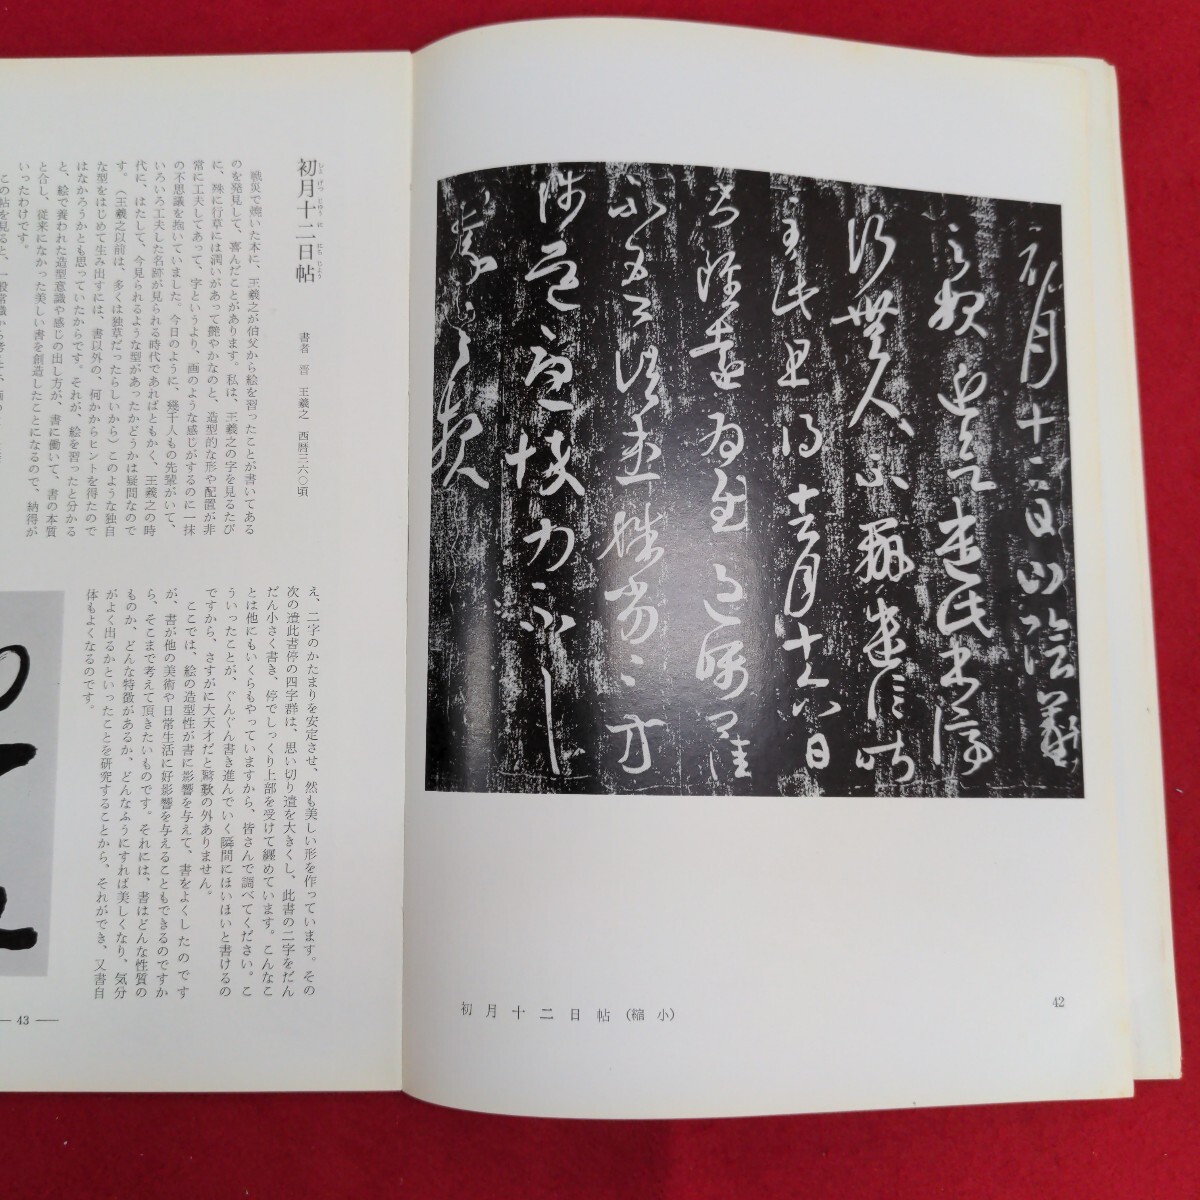 初月十二日山陰羲
之報近欲遣此書停
行無人不辦遣信昨
至此且得去月十六日
書雖遠為慰過囑卿佳
不吾諸患殊劣劣方
涉道憂悴力不具
羲之報
初月十二日帖（縮小）
42
初月十二日帖
しょ げつ じゅう に にち じょう
書者 晋 王羲之 西暦三六〇頃
戦災で焼いた本に、王羲之が伯父から絵を習ったことが書いてある
のを発見して、喜んだことがあります。私は、王羲之の字を見るたび
に、殊に行草には潤いがあって艶やかなのと、造型的な形や配置が非
常に工夫してあって、字というより、画のような感じがするのに一抹
の不思議を抱いていました。今日のように、幾千人もの先輩がいて、
いろいろ工夫した名跡が見られる時代であればともかく、王羲之の時
代に、はたして、今見られるような型があったかどうかは疑問なので
す。（王羲之以前は、多くは独草だったらしいから）このような独自
な型をはじめて生み出すには、書以外の、何かからヒントを得たので
はなかろうかとも思っていたからです。それが、絵を習ったと分かる
と、絵で養われた造型意識や感じの出し方が、書に働いて、書の本質
と合し、従来になかった美しい書を創造したことになるので、納得が
いったわけです。
この帖を見ると、一般常識から考えて、
え、二字のかたまりを安定させ、然も美しい形を作っています。その
次の遣此書停の四字群は、思い切り遣を大きくし、此書の二字をだん
だん小さく書き、停でしっくり上部を受けて纒めています。こんなこ
とは他にもいくらもやっていますから、皆さんで調べてください。こ
ういったことが、ぐんぐん書き進んでいく瞬間にほいほいと書けるの
ですから、さすがに大天才だと驚歎の外ありません。
ここでは、絵の造型性が書に影響を与えて、書をよくしたのです
が、書が他の美術や日常生活に好影響を与えることもできるのですか
ら、そこまで考えて頂きたいものです。それには、書はどんな性質の
ものか、どんな特徴があるか、どんなふうにすれば美しくなり、気分
がよく出るかといったことを研究することから、それができ、又書自
体もよくなるのです。
— 43 —